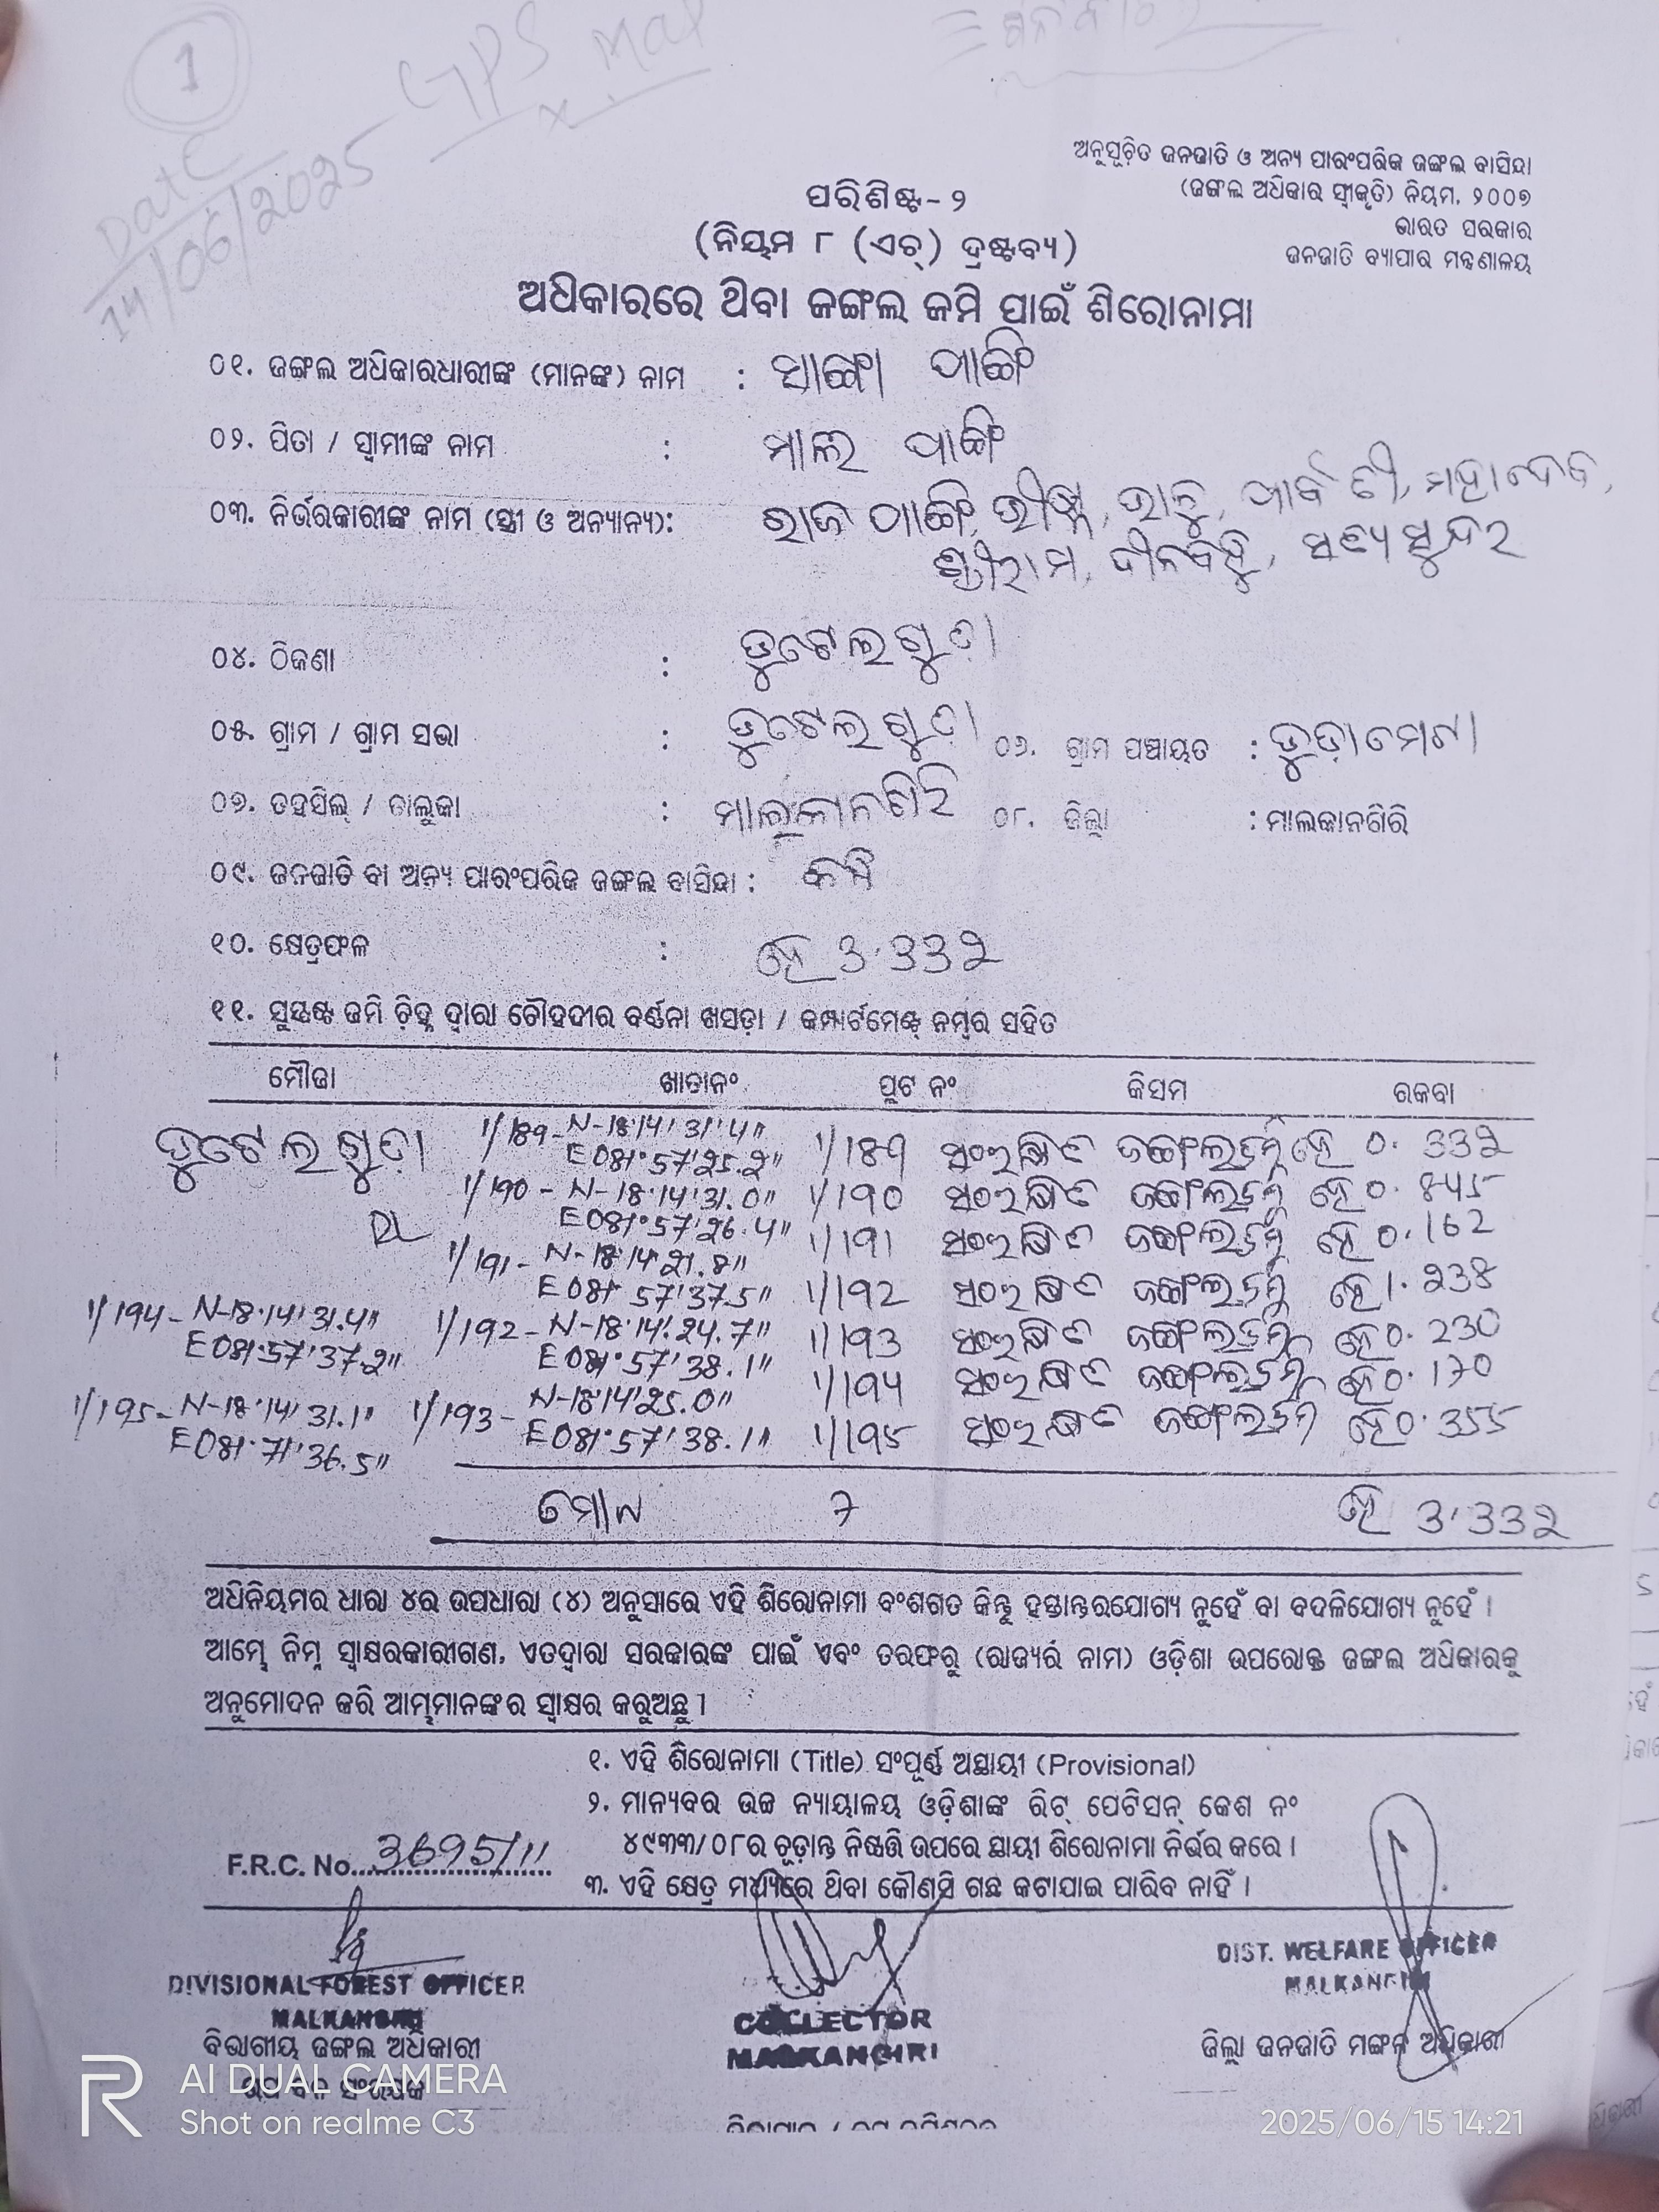 1
GPS Map
Date
14/06/2025
ଅନୁସୂଚିତ ଜନଜାତି ଓ ଅନ୍ୟ ପାରଂପରିକ ଜଙ୍ଗଲ ବାସିନ୍ଦା
(ଜଙ୍ଗଲ ଅଧିକାର ସ୍ୱୀକୃତି) ନିୟମ, ୨୦୦୭
ଭାରତ ସରକାର
ଜନଜାତି ବ୍ୟାପାର ମନ୍ତ୍ରଣାଳୟ
ପରିଶିଷ୍ଟ-୨
(ନିୟମ ୮ (ଏଚ୍) ଦ୍ରଷ୍ଟବ୍ୟ)
ଅଧିକାରରେ ଥିବା ଜଙ୍ଗଲ ଜମି ପାଇଁ ଶିରୋନାମା
୦୧. ଜଙ୍ଗଲ ଅଧିକାରଧାରୀଙ୍କ (ମାନଙ୍କ) ନାମ : ପାଙ୍ଗି
୦୨. ପିତା / ସ୍ୱାମୀଙ୍କ ନାମ : ମାଲ ପାଙ୍ଗି
୦୩. ନିର୍ଭରକାରୀଙ୍କ ନାମ (ସ୍ତ୍ରୀ ଓ ଅନ୍ୟାନ୍ୟ): ପାଙ୍ଗି, ପାର୍ବତୀ, ମହାଦେବ,
ଶ୍ରୀରାମ, ଦୀନବନ୍ଧୁ, ସତ୍ୟସୁନ୍ଦର
୦୪. ଠିକଣା : ତୁଟେଲଗୁଡ଼ା
୦୫. ଗ୍ରାମ / ଗ୍ରାମ ସଭା : ତୁଟେଲଗୁଡ଼ା ୦୬. ଗ୍ରାମ ପଞ୍ଚାୟତ :
୦୭. ତହସିଲ୍ / ତାଲୁକା : ମାଲକାନଗିରି ୦୮. ଜିଲ୍ଲା : ମାଲକାନଗିରି
୦୯. ଜନଜାତି ବା ଅନ୍ୟ ପାରଂପରିକ ଜଙ୍ଗଲ ବାସିନ୍ଦା :
୧୦. କ୍ଷେତ୍ରଫଳ : ହେ 3.332
୧୧. ସୁସ୍ପଷ୍ଟ ଜମି ଚିହ୍ନ ଦ୍ୱାରା ଚୌହଦୀର ବର୍ଣ୍ଣନା ଖସଡ଼ା / କମ୍ପାର୍ଟମେଣ୍ଟ ନମ୍ବର ସହିତ
ମୌଜା ଖାତାନଂ ପ୍ଲଟ ନଂ କିସମ ରକବା
ତୁଟେଲଗୁଡ଼ା 1/189-N-18°14'31.4" 1/189 ସଂରକ୍ଷିତ ଜଙ୍ଗଲ ହେ 0.332
E081°57'25.2"
1/190-N-18°14'31.0" 1/190 ସଂରକ୍ଷିତ ଜଙ୍ଗଲ ହେ 0.845
E081°57'26.4"
1/191-N-18°14'21.8" 1/191 ସଂରକ୍ଷିତ ଜଙ୍ଗଲ ହେ 0.162
E081°57'37.5" 1/192 ସଂରକ୍ଷିତ ଜଙ୍ଗଲ ହେ 1.238
1/194-N-18°14'31.4" 1/192-N-18°14'24.7" 1/193 ସଂରକ୍ଷିତ ଜଙ୍ଗଲ ହେ 0.230
E081°57'37.2" E081°57'38.1" 1/194 ସଂରକ୍ଷିତ ଜଙ୍ଗଲ ହେ 0.170
1/195-N-18°14'31.1" 1/193-N-18°14'25.0" 1/195 ସଂରକ୍ଷିତ ଜଙ୍ଗଲ ହେ 0.355
E081°71'36.5" E081°57'38.1"
ମୋଟ 7 ହେ 3.332
ଅଧିନିୟମର ଧାରା ୪ର ଉପଧାରା (୪) ଅନୁସାରେ ଏହି ଶିରୋନାମା ବଂଶଗତ କିନ୍ତୁ ହସ୍ତାନ୍ତରଯୋଗ୍ୟ ନୁହେଁ ବା ବଦଳିଯୋଗ୍ୟ ନୁହେଁ ।
ଆମ୍ଭେ ନିମ୍ନ ସ୍ୱାକ୍ଷରକାରୀଗଣ, ଏତଦ୍ୱାରା ସରକାରଙ୍କ ପାଇଁ ଏବଂ ତରଫରୁ (ରାଜ୍ୟର ନାମ) ଓଡ଼ିଶା ଉପରୋକ୍ତ ଜଙ୍ଗଲ ଅଧିକାରକୁ
ଅନୁମୋଦନ କରି ଆମ୍ଭମାନଙ୍କର ସ୍ୱାକ୍ଷର କରୁଅଛୁ ।
୧. ଏହି ଶିରୋନାମା (Title) ସଂପୂର୍ଣ୍ଣ ଅସ୍ଥାୟୀ (Provisional)
୨. ମାନ୍ୟବର ଉଚ୍ଚ ନ୍ୟାୟାଳୟ ଓଡ଼ିଶାଙ୍କ ରିଟ୍ ପେଟିସନ୍ କେଶ ନଂ
୪୯୩୩/୦୮ର ଚୂଡ଼ାନ୍ତ ନିଷ୍ପତ୍ତି ଉପରେ ସ୍ଥାୟୀ ଶିରୋନାମା ନିର୍ଭର କରେ ।
F.R.C. No. 3695/11
୩. ଏହି କ୍ଷେତ୍ର ମଧ୍ୟରେ ଥିବା କୌଣସି ଗଛ କଟାଯାଇ ପାରିବ ନାହିଁ ।
DIVISIONAL FOREST OFFICER
MALKANGIRI
ବିଭାଗୀୟ ଜଙ୍ଗଲ ଅଧିକାରୀ
COLLECTOR
MALKANGIRI
DIST. WELFARE OFFICER
MALKANGIRI
ଜିଲ୍ଲା ଜନଜାତି ମଙ୍ଗଳ ଅଧିକାରୀ
AI DUAL CAMERA
Shot on realme C3
2025/06/15 14:21